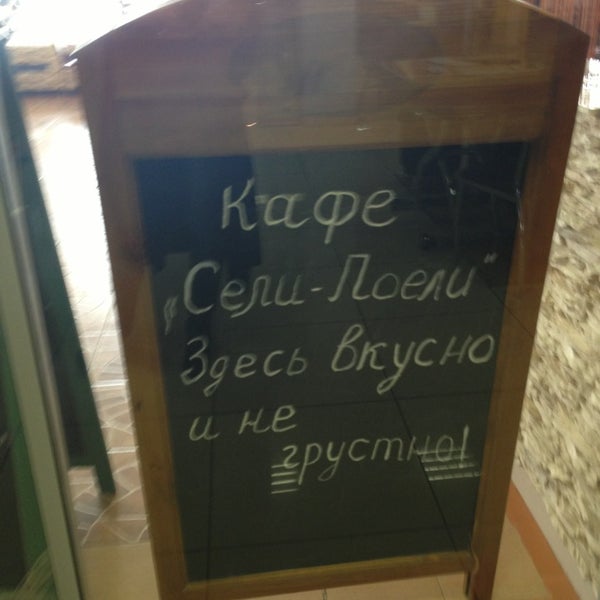 Кафе
„Сели-Поели"
Здесь вкусно
и не
грустно!